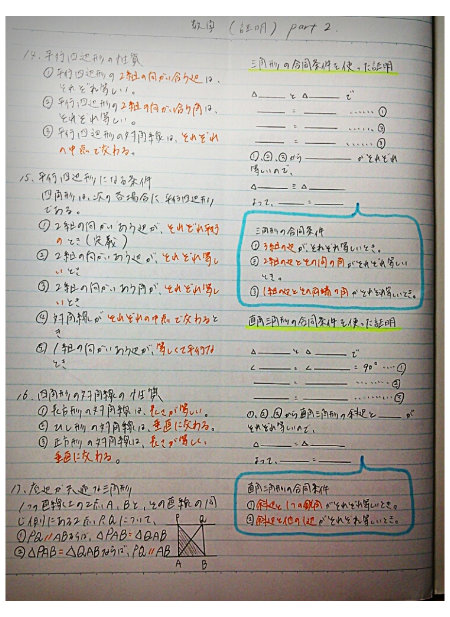 数学 (証明) part 2.
14. 平行四辺形の性質
① 平行四辺形の2組の向かい合う辺は、
それぞれ等しい。
② 平行四辺形の2組の向かい合う角は、
それぞれ等しい。
③ 平行四辺形の対角線は、それぞれ
の中点で交わる。
15. 平行四辺形になる条件
四角形は、次の各場合に平行四辺形
である。
① 2組の向かいあう辺が、それぞれ平行
のとき(定義)
② 2組の向かいあう辺が、それぞれ等し
いとき
③ 2組の向かいあう角が、それぞれ等し
いとき
④ 対角線がそれぞれの中点で交わると
き
⑤ 1組の向かいあう辺が、等しくて平行な
とき
16. 四角形の対角線の性質
① 長方形の対角線は、長さが等しい。
② ひし形の対角線は、垂直に交わる。
③ 正方形の対角線は、長さが等しく、
垂直に交わる。
17. 底辺が共通な三角形
1つの直線上の2点A、Bと、その直線の同
じ側にある2点P、Qについて、
① PQ//ABならば、△PAB=△QAB
② △PAB=△QABならば、PQ//AB
P Q
A B
三角形の合同条件を使った証明
△ と △ で
= …… ①
= …… ②
= …… ③
①、②、③から がそれぞれ
等しいので、
△ ≡ △
よって、 =
三角形の合同条件
① 3組の辺がそれぞれ等しいとき。
② 2組の辺とその間の角がそれぞれ等しい
とき。
③ 1組の辺とその両端の角がそれぞれ等しいとき。
直角三角形の合同条件を使った証明
△ と △ で
∠ = ∠ = 90° … ①
= …… ②
= …… ③
①、②、③から直角三角形の斜辺と が
それぞれ等しいので、
△ ≡ △
よって、 =
直角三角形の合同条件
① 斜辺と1つの鋭角がそれぞれ等しいとき。
② 斜辺と他の1辺がそれぞれ等しいとき。